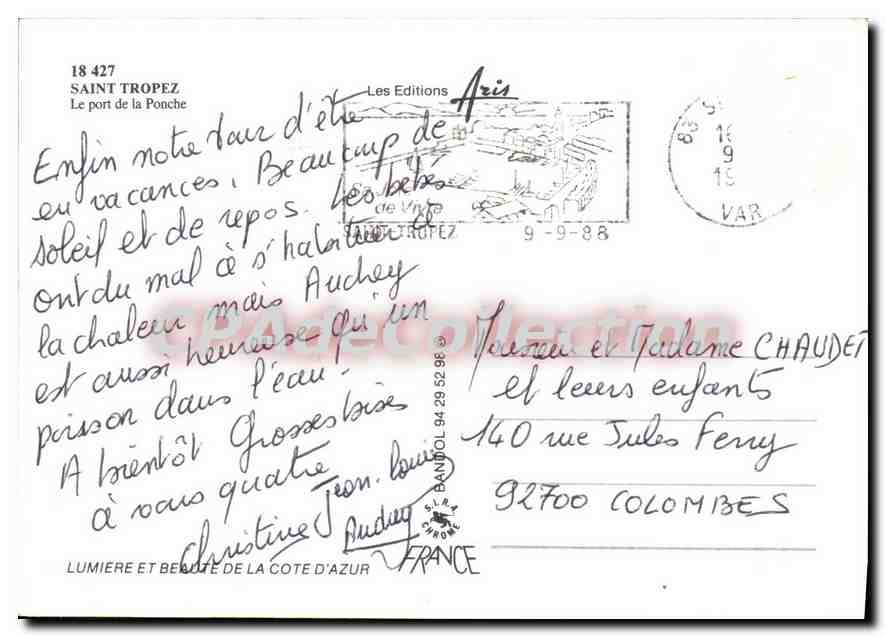 18 427
SAINT TROPEZ
Le port de la Ponche
Les Editions Aris
de Vivre
SAINT-TROPEZ 9-9-88
83 S
16
9
19
VAR
Enfin notre tour d'être
en vacances. Beaucoup de
soleil et de repos. Les bébés
ont du mal à s'habituer à
la chaleur mais Audrey
est aussi heureuse qu'un
poisson dans l'eau.
A bientôt Grosses bises
à vous quatre
Christine Jean-Louis
Audrey
CPAdeCollection
Monsieur et Madame CHAUDET
et leurs enfants
140 rue Jules Ferry
92700 COLOMBES
BANDOL 94 29 52 98 ©
S.I.R.A. CHROME
FRANCE
LUMIERE ET BEAUTE DE LA COTE D'AZUR